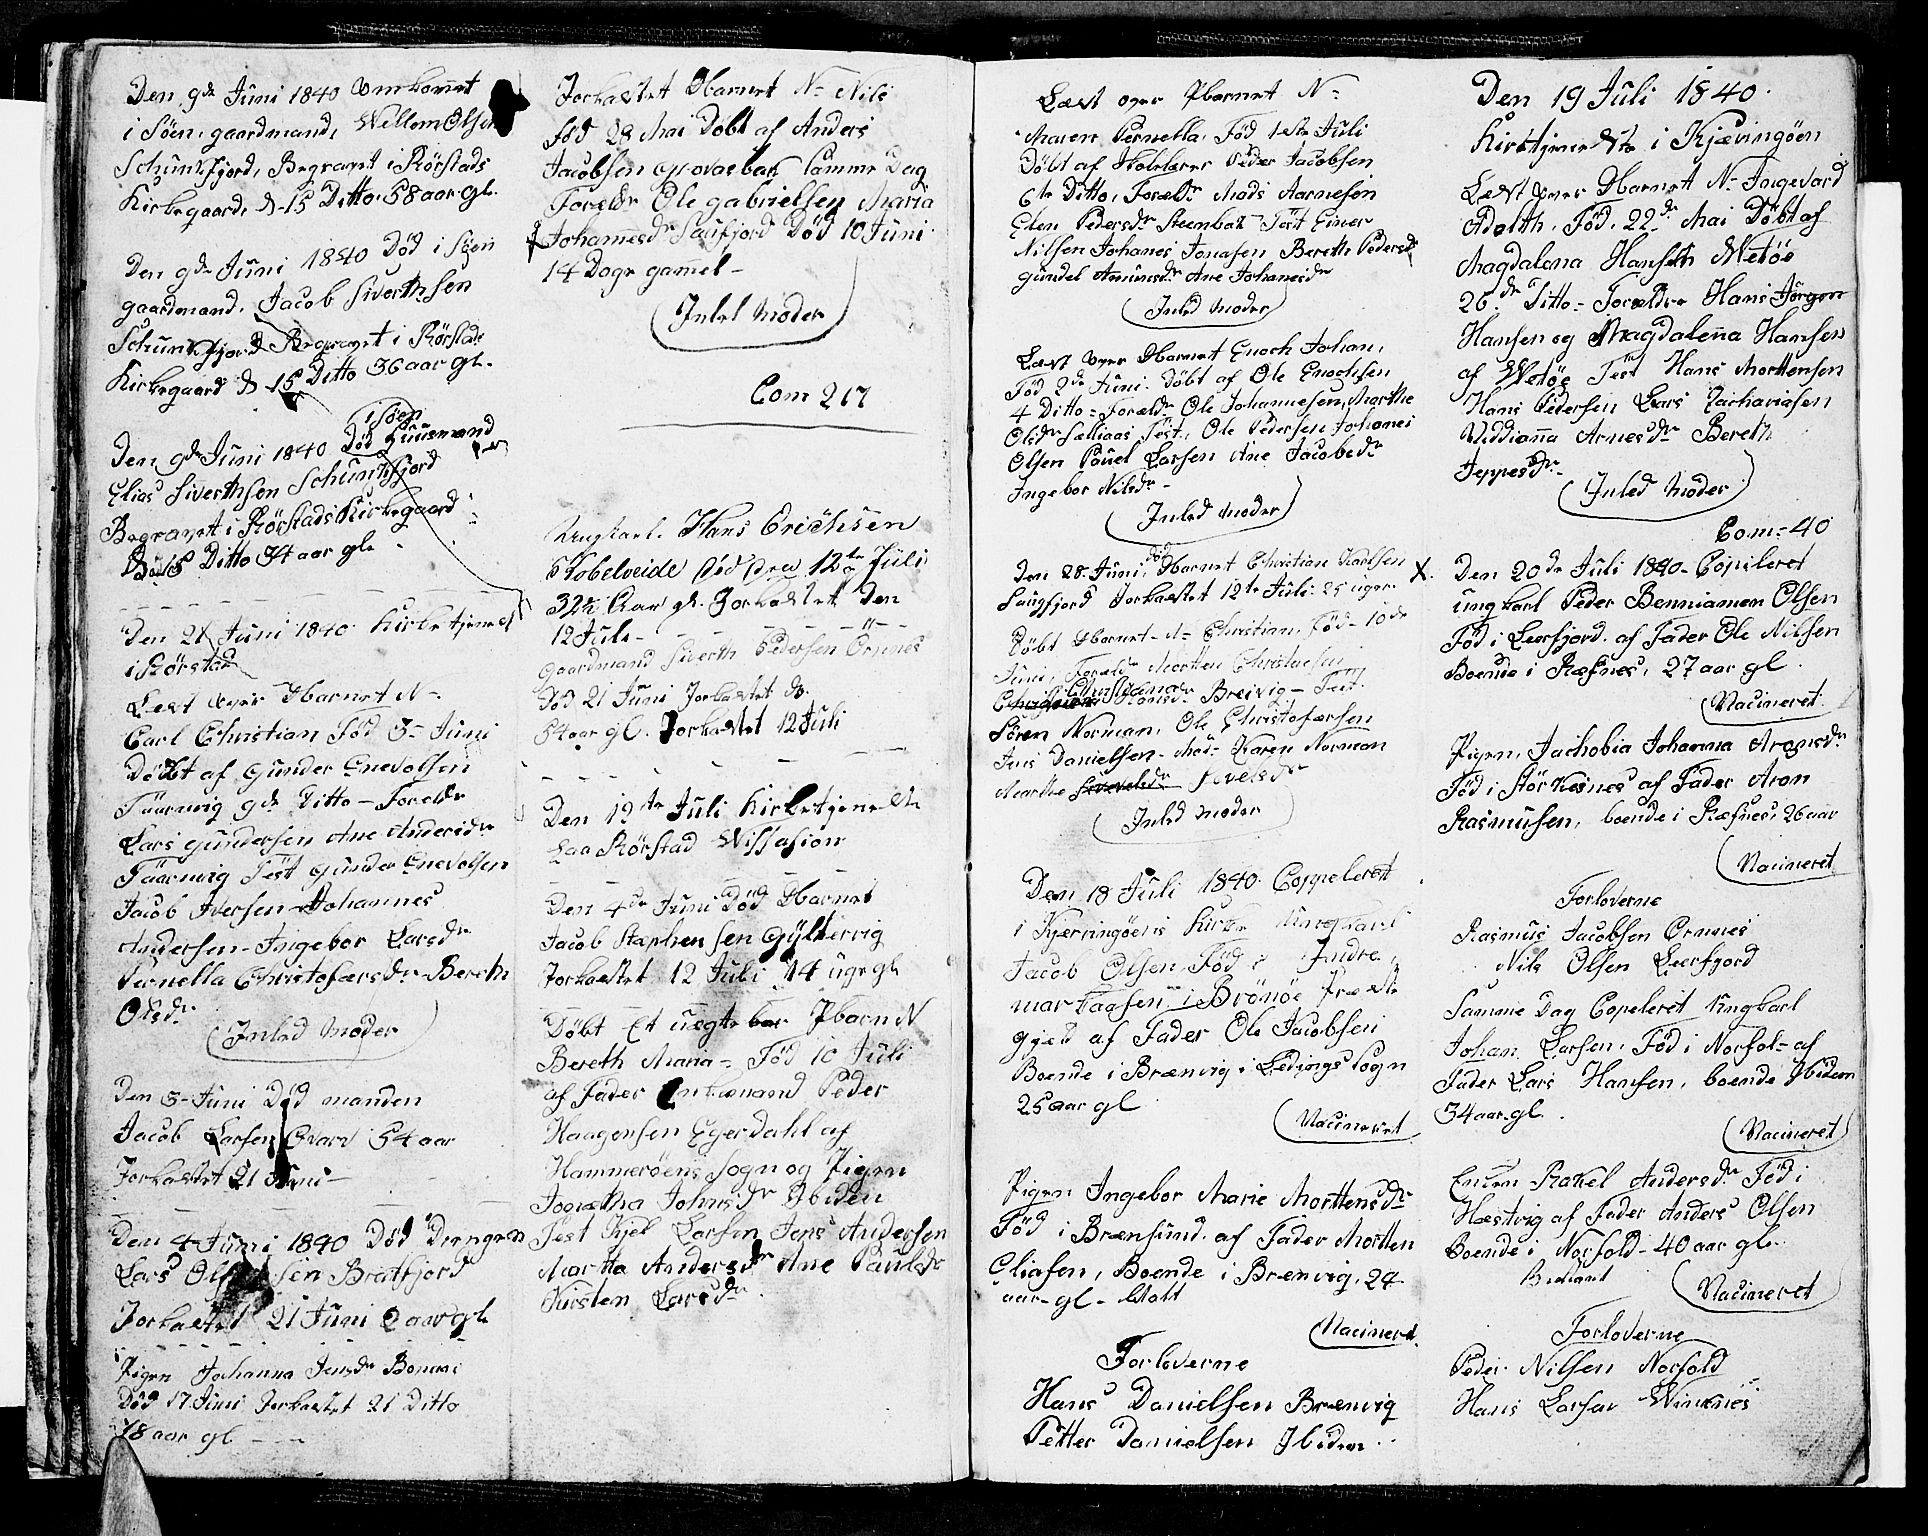 Den 9de Juni 1840 omkommet
i Söen, gaardmand, Wellom Olsen
Schunkfjord, Begravet i Rörstads
Kirkegaard, d. 15 Ditto. 58 aar gl.
Den 9de Juni 1840 Död i Söen
gaardmand, Jacob Siverthsen
Schunkfjord Begravet i Rörstads
Kirkegaard d 15 Ditto 36 aar gl.
i Söen
Den 9de Juni 1840 Död Huusmand
Elias Siverthsen Schunkfjord
Begravet i Rörstads Kirkegaard
15 Ditto 34 aar gl.
Den 21 Juni 1840 Kirketjeneste
i Rörstad
Lest over Hbarnet N-
Carl Christian Föd 3- Juni
Döbt af Gunder Enevolsen
Taarnvig 9de Ditto - Forældr
Lars Gundersen Ane Andersdr
Taarnvig Test Gunder Enevolsen
Jacob Iversen Johannes
Andersen - Ingebor Larsdr
Pernella Christofærsdr Bereth
Olsdr
Inled Moder
Den 3- Juni Död manden
Jacob Larsen 54 aar
Jorkastet 21 Juni -
Den 4 Juni 1840 Död Drengen
Lars Olsen Bratfjord
Jorkastet 21 Juni 2 aar gl
Pigen Johanna Jensdr Bonnasi
Död 17 Juni Jorkastet 21 Ditto
78 aar gl - -
Jorkastet Hbarnet N- Nils
föd 28 Mai Döbt af Anders
Jacobsen Grovasbak samme Dag
Forældr Ole Gabrielsen Maria
Johannesdr Saufjord Död 10 Juni
14 Dage gammel -
Inled Moder
Com 217
Ungkarl. Hans Erichsen
Kobelveide Död den 12te Juli
32½ Aar gl. Jorkastet Den
12 Juli -
Gaardmand Siverth Pedersen Örnnes
Död 21 Juni Jorkastet do.
54 aar gl. Jorkastet 12 Juli
Den 12te Juli Kirketjeneste
paa Rörstad Wissasion
Den 4de Juni Död Hbarnet
Jacob Stephensen Gyltervig
Jorkastet 12 Juli 14 uger gl
Döbt Et uægte Pbarn N
Bereth Maria - Föd 10 Juli
af Fader Enkemand Peder
Haagensen Egerdahl af
Hammeröens Sogn og Pigen
Johnsdr Ibiden
Test Kjel Larsen Jens Andersen
Martha Andersdr Ane Paulsdr
Kirsten Larsdr.
Læst over Pbarnet N-
Maren Pernella. Föd 1ste Juli
Döbt af Skolelærer Peder Jacobsen
6te Ditto, Forældr Mads Aarnesen
Elen Pedersdr Steenbak - Test Einer
Nilsen Johanes Jonasen Bereth Pedersdr
Gundel Amunsdr Ane Johanesdr
Inled Moder
Læst over Hbarnet Enoch Johan,
Föd 2de Juni. Döbt af Ole Enochsen
4 Ditto - Forældr Ole Johannesen, Marthe
Olsdr Test, Ole Pedersen Johanes
Olsen Pauel Larsen Ane Jacobsdr
Ingebor Nilsdr -
Inled Moder
Den 28 Juni, död Hbarnet Christian Karlsen
Saugfjord Jorkastet 12te Juli. 25 uger
Döbt Hbarnet - N- Christian. Föd - 10de
Juni, Forældr Morten Christiansen
Christianna Breivig - Test.
Sören Norman, Ole Christofærsen
Jens Danielsen - Mad- Karen Norman
Marthe Sivelsdr
Inled Moder
Den 18 Juli 1840. Coppeleret
i Kjærringöens Kirke Ungkarl
Jacob Olsen Föd i Indre
i Brönöe Præste
gjæld af Fader Ole Jacobsen
Boende i Brænvig i Ledings Sogn
25 aar gl
Vacineret
Pigen Ingebor Marie Morttensdr
Föd i Brænsund. af Fader Mortten
Eliasen, Boende i Brænvig, 24
aar gl -
Vacineret
Forloverne
Hans Danielsen Brænvig
Petter Danielsen Ibiden
Den 19 Juli 1840.
Kirktjeneste i Kjævingöen
Læst over Hbarnet N- Ingevard
Adolth. Föd. 22de Mai Döbt af
Magdalena Hansen Wetöe
26de Ditto - Forældre Hans Jörgen
Hansen og Magdalenna Hansen
af Wetöe Test Hans Morttensen
Hans Pedersen Lars Zachariasen
Widdianna Arnesdr Bereth
Jeppesdr -
Inled Moder
Com = 40
X. Den 20de Juli 1840 - Copileret
ungkarl Peder Benniamen Olsen
Föd i Leerfjord. af Fader Ole Nilsen
Boende i Ræfnes, 27 aar gl.
Vacineret
Pigen, Jachobia Johanna Aronsdr
Föd i Störkesnes af Fader Aron
Rasmusen, boende i Ræfnes, 26 aar
Vacineret
Forloverne
Rasmus Jacobsen Ornnes
Nils Olsen Leerfjord
Samme Dag Copeleret ungkarl
Johan Larsen. Föd i Norfol- af
Fader Lars Hansen, boende Ibidem
34 aar gl.
Vacineret
Enken Rakel Andersdr Föd i
Hæstvig af Fader Anders Olsen
Boende i Norfold - 40 aar gl.
Vacineret
Forloverne
Peder Nilsen Norfold
Hans Larsen Winknes